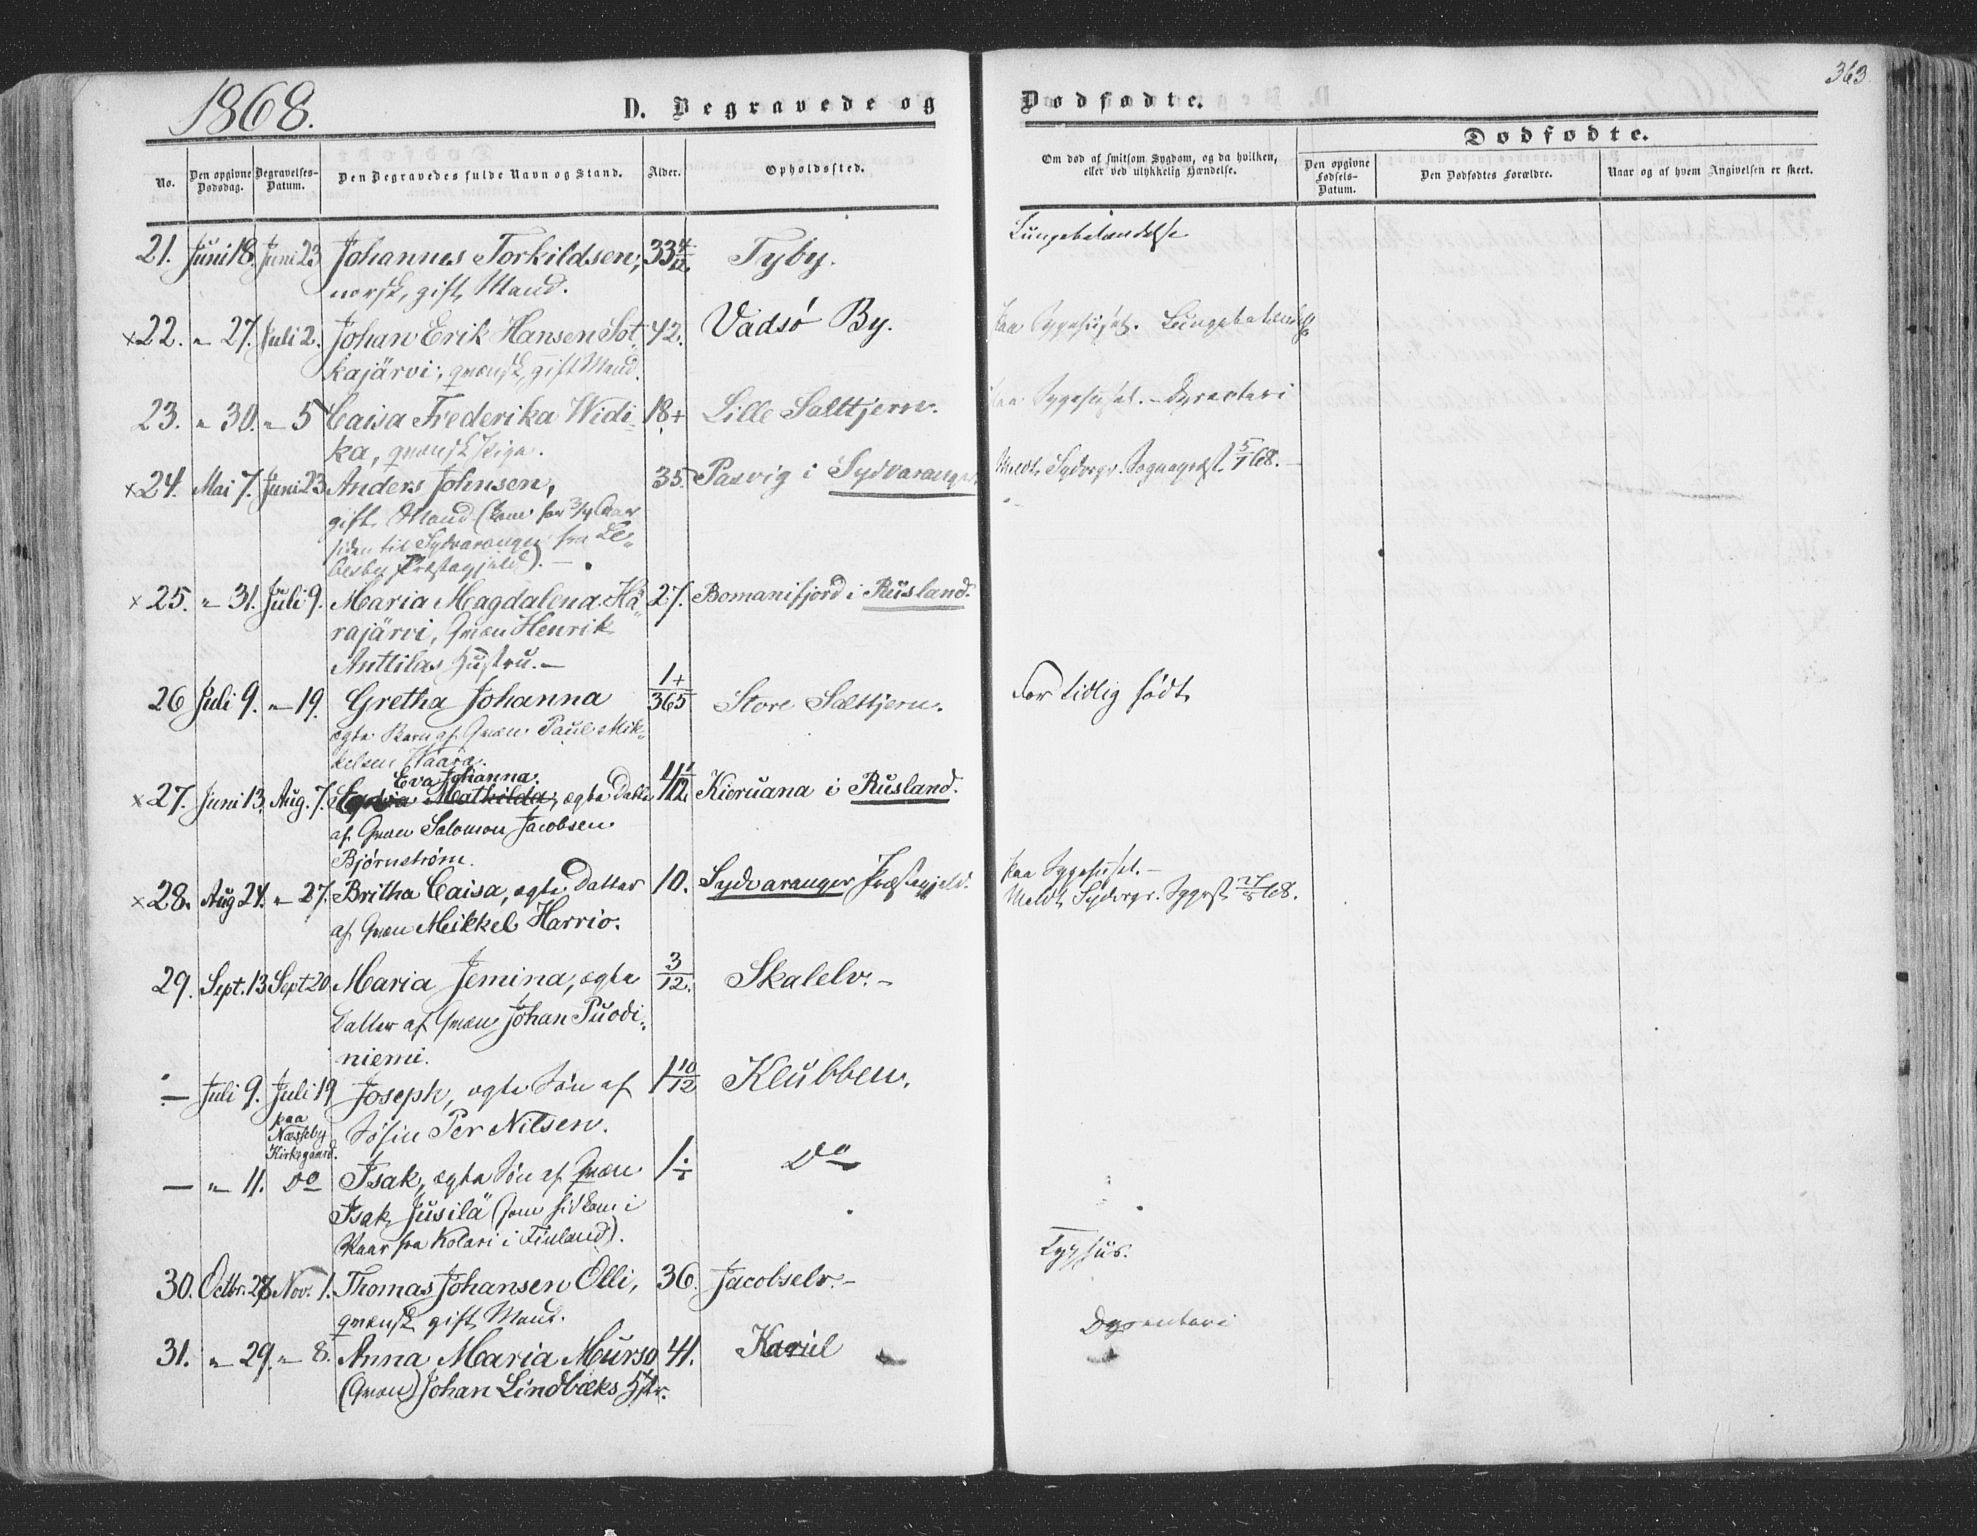 1868.
363.
D. Begravede og Dødfødte.
Dødfødte.
No.
Den opgivne Dødsdag.
Begravelses-Datum.
Den Begravedes fulde Navn og Stand.
Alder.
Opholdssted.
Om død af smitsom Sygdom, og da hvilken, eller ved ulykkelig Hændelse.
Den opgivne Fødsels-Datum.
Den Dødfødtes Forældre.
Naar og af hvem Angivelsen er skeet.
21. Juni 18. Juni 23 Johannes Torkildsen, 33 4/12 Tyby. Lungebetændelse
norsk, gift Mand.
×22. " 27. Juli 2. Johan Erik Hansen Sot- 42. Vadsø By. paa Sygehuset. Lungebetændelse
kajärvi, qvænsk, gift Mand.
23. " 30. " 5 Caisa Frederika Widi- 18+ Lille Salttjern. paa Sygehuset. – Dysenteri
ka, qvænsk Pige.
×24. Mai 7. Juni 23 Anders Johnsen, 35. Pasvig i Sydvaranger. Meldt Sydvgr. Sognepræst 5/7 68. –
gift Mand (kom for 3/4 Aar
siden til Sydvaranger fra Le-
besby Præstegjeld). –
×25. " 31. Juli 9. Maria Magdalena Ka- 27. Bomanifjord i Rusland.
rajärvi, Qvæn Henrik
Anttilas Hustru. –
26 Juli 9. " 19. Gretha Johanna 1+/365 Store Salttjern. For tidlig født
ægte Barn af Qvæn Paul Mik-
kelsen Waara.
Eva Johanna.
×27. Juni 13. Aug. 7. Mathilda, ægte Datter 4 1/12 Kieruana i Rusland.
af Qvæn Salomon Jacobsen
Bjørnstrøm.
×28. Aug 24. " 27. Britha Caisa, ægte Datter 10. Sydvaranger Præstegjeld. paa Sygehuset. –
af Qvæn Meikkel Harrio. Meldt Sydvgr. Sgprst 27/8 68.
29. Sept. 13 Sept 20 Maria Jemina, ægte 3/12. Skalelv. –
Datter af Qvæn Johan Puodi-
niemi.
– Juli 9. Juli 19 Joseph, ægte Søn af 1 10/12 Klubben.
paa Næsseby Kirkegaard.
Søfin Per Nilsen.
– " 11. Do Isak, ægte Søn af Qvæn Do
Isak Jusilä (som sidkom i
Vaar fra Kolari i Finland).
30. Octbr. 28 Nov. 1. Thomas Johansen Olli, 36. Jacobselv. – Typhus.
qvænsk gift Mand.
31. " 29. " 8. Anna Maria Murso 41. Kariel Dysenteri
(Qvæn) Johan Lindbæks Hstr.